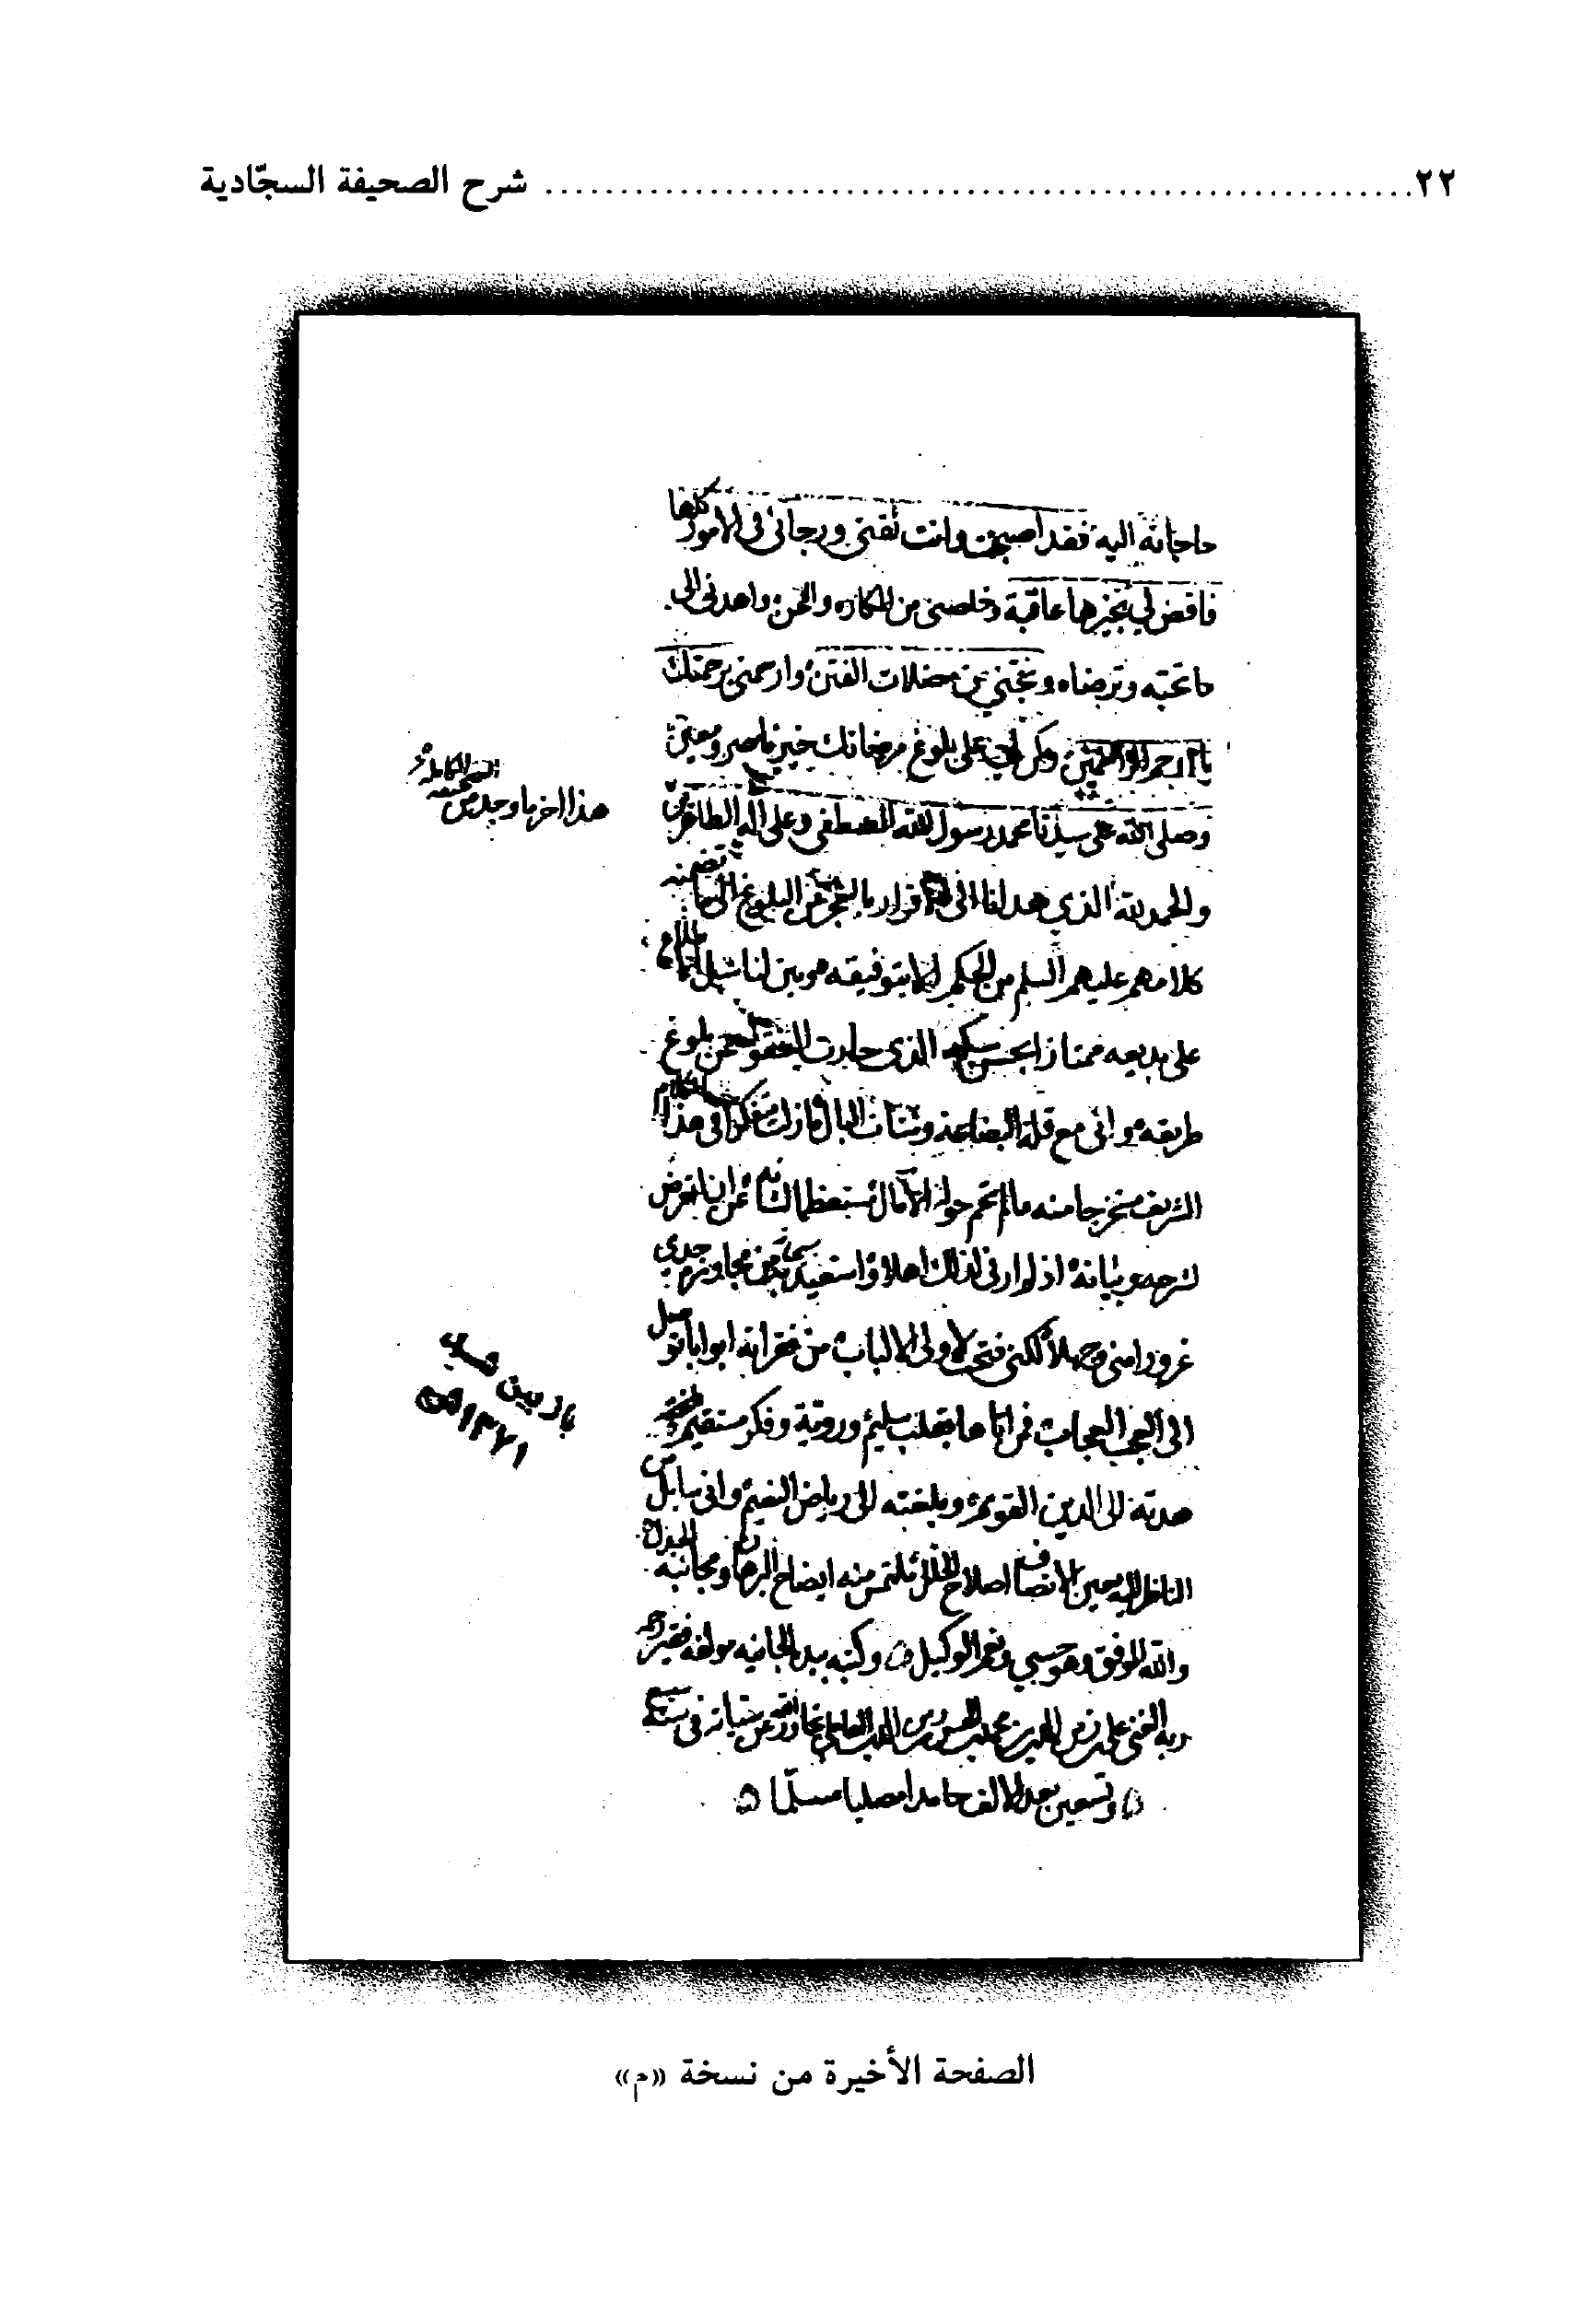 ٢٢ ........................................................ شرح الصحيفة السجّادية
حاجاته اليه فقد اصبحت وانت ثقتي ورجائي في الامور كلها
فاقض لي بخيرها عاقبة وخلصني من المكاره والمحن واهدني الى
ما تحبه وترضاه ونجني من مضلات الفتن وارحمني برحمتك
يا ارحم الراحمين وكن لي على بلوغ مرضاتك خير ناصر ومعين
وصلى الله على سيدنا محمد رسول الله المصطفى وعلى اله الطاهرين
هذا اخر ما وجد من الصحيفة الكاملة
والحمد لله الذي هدانا الى الاقرار بالعجز عن البلوغ الى ما تضمنه
كلامهم عليهم السلم من الحكم الا بتوفيقه
على بديعه ممتازا بحسن سبكه الذي حارت العقول عن بلوغ
طريقه واني مع قلة البضاعة وشتات البال ما زلت متفكرا في هذا الكلام
الشريف مستخرجا منه ما لم تحم حوله الآمال مستعظما لشانه عن ان اتعرض
لشرحه وبيانه اذ لم ارني لذلك اهلا واستعيذ من مجاوزة حدي
غرورا مني وجهلا لكني فتحت لاولي الالباب من فقراته ابوابا توصل
الى العجب العجاب فمن اتاها بقلب سليم وروية وفكر مستقيم
هدته الى الدين القويم وبلغته الى رياض النعيم واني سايل من
الناظر اليه بعين الانصاف اصلاح الخلل ملتمس منه ايضاح البرهان ومجانبة الجدل
والله الموفق وهو حسبي ونعم الوكيل وكتبه بيده الجانية مولفه فقير رحمة
ربه الغني علي بن زين الدين بن محمد بن الحسن بن زين الدين العاملي تجاوز الله عن سيئاته في سنة سبع
وتسعين بعد الالف حامدا مصليا مسلما
بازبين شد
١٣٧١
الصفحة الأخيرة من نسخة «م»